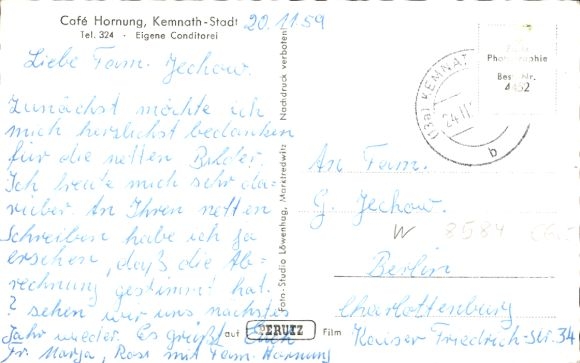 Café Hornung, Kemnath-Stadt
Tel. 324 · Eigene Conditorei
20.11.59
Liebe Fam. Jechow.
Zunächst möchte ich
mich herzlichst bedanken
für die netten Bilder.
Ich freute mich sehr da-
rüber. An Ihren netten
Schreiben habe ich ja
ersehen, daß die Ab-
rechnung gestimmt hat.
? sehen wir uns nächstes
Jahr wieder. Es grüßt Euch
Fr. Marya, Rosa mit Fam. Hornung
Foto-Studio Löwenhag, Marktredwitz Nachdruck verboten
auf PERUTZ Film
Photographie
Best. Nr.
4452
(13a) KEMNAT
24.11.
b
An Fam.
G. Jechow.
W 8584
Berlin
Charlottenburg
Kaiser Friedrich-Str. 34